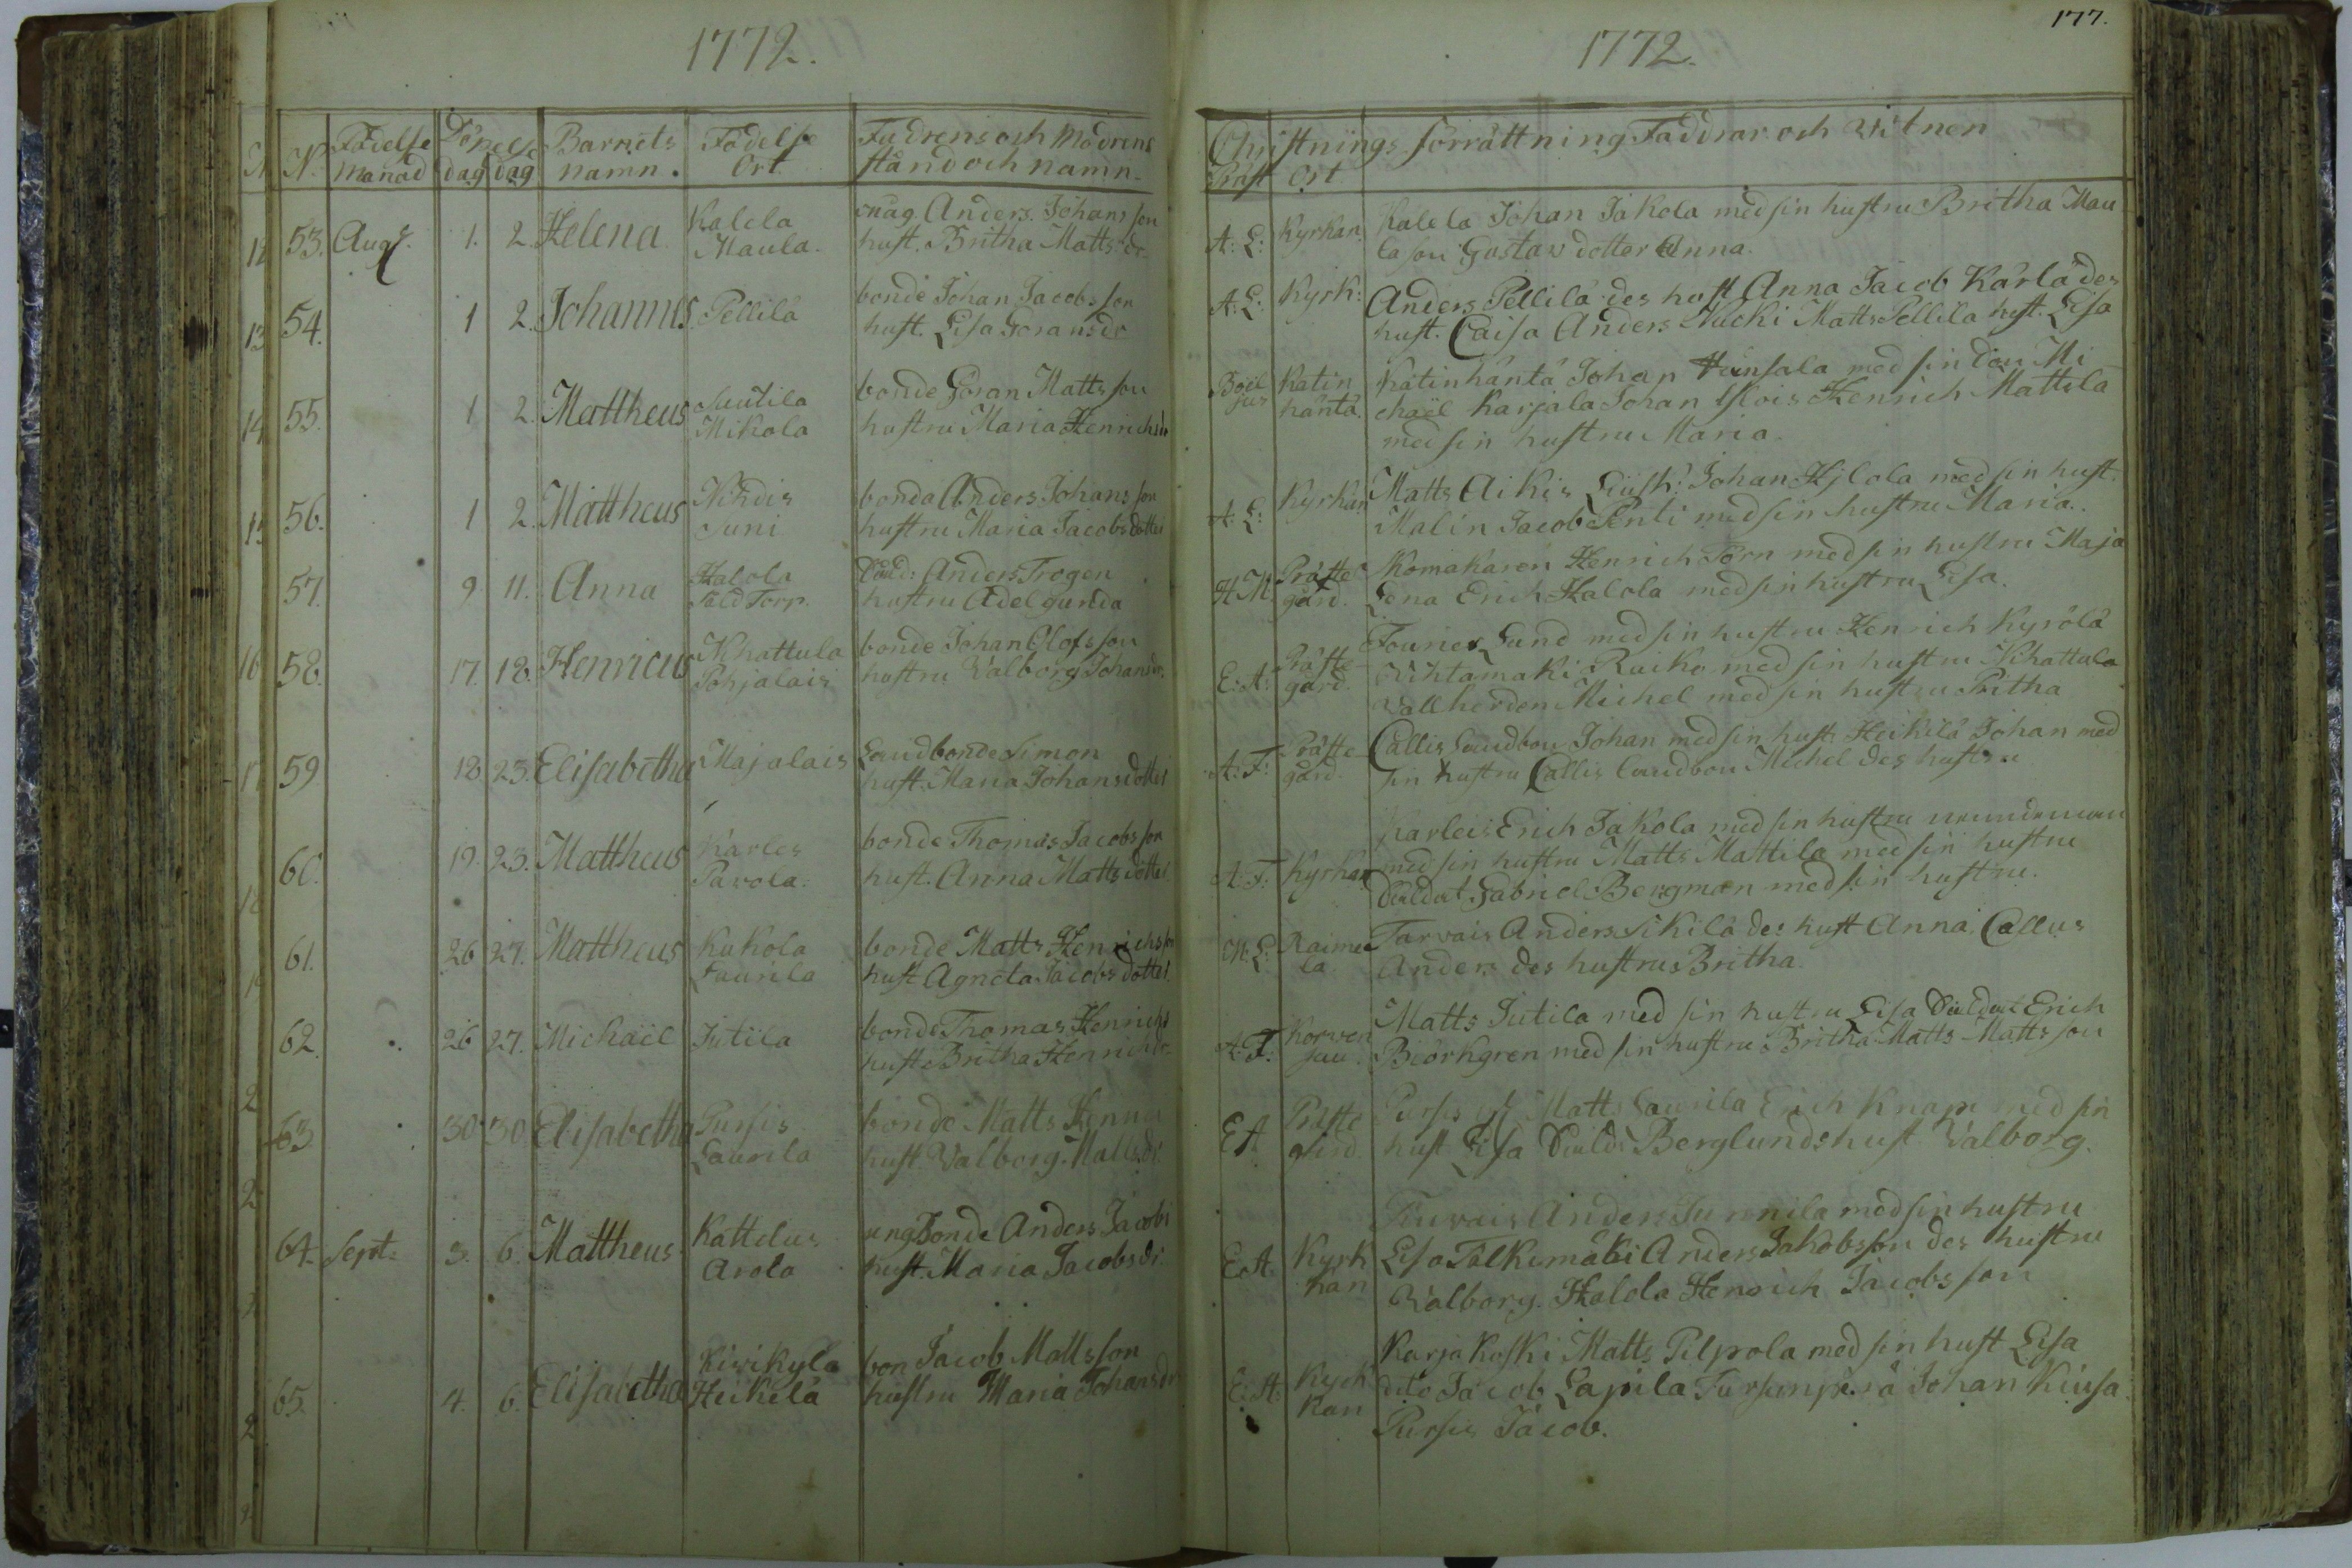 1772.
N. Födelse Månad Döpelse dag dag Barnets namn. Födelse Ort. Fadrens och Modrens stånd och namn.
53. Aug. 1. 2. Helena Kalela Maula. måg. Anders Johansson
hust. Britha Matts dr
54. 1 2. Johannes Pellilä bonde Johan Jacobsson
hust. Lisa Göransdr
55. 1 2. Mattheus Sautila Mikola bonde Göran Mattsson
hustru Maria Henrichsdr
56. 1 2. Mattheus Nihdis Juni bonda Anders Johansson
hustru Maria Jacobsdotter
57. 9 11. Anna Halola Sold Torp. Sold: Anders Trogen
hustru Adelgunda
58. 17. 18. Henricus Nihattula Pohjalais bonde Johan Olofsson
hustru Valborg Johansdr.
59 18 23. Elisabetha Majalais Landbonde Simon
hust. Maria Johansdotter
60. 19. 23. Mattheus Karles Pavola. bonde Thomas Jacobsson
hust. Anna Mattsdotter
61. 26 27. Mattheus Kukola Laurila bonde Matts Henrichsson
hust Agneta Jacobsdotter
62. 26 27. Michaël Jutila bonde Thomas Henrichs
hust. Britha Henrichdr
63 30 30. Elisabetha Pursis Laurila bonde Matts Henri
hust. Valborg. Mattsdr.
64. Sept. 3. 6. Mattheus Kattelus Arola ung bonde Anders Jacobs
hust. Maria Jacobsdr.
65. 4. 6. Elisabetha Kiwikylä Heikilä bon Jacob Mattsson
hustru Maria Johansdr
177.
1772.
Christnings förrättning Faddrar och Vitnen
Präst Ort
A: L: Kyrkan. Kalela Johan Jakola med sin hustru Britha Mau
la son Gustav dotter Anna.
A: L: Kyrk: Anders Pellilä des hust Anna Jacob Karla des
hust. Caisa Anders Nucki Matts Pellila hust. Lisa
Katin häntä. Katinhäntä Johan Heinsala med sin son Mi
chaël Karjala Johan Henrich Mattila
med sin hustru Maria.
A: L: Kyrkan Matts Aikis Johan Hjlola med sin hust.
Malin Jacob Penti med sin hustru Maria.
H. M. Präste gård. Komakaren Henrich Törn med sin hustru Maja
Lena Erich Halola med sin hustru Lisa.
E: A: Präste gård. Fourier Lund med sin hustru Henrich Kyrölä
Rihtamaki Ruiko med sin hustru Nihattula
Vallherden Michel med sin hustru Pritha
A: F: Präste gård. Callis landbon Johan med sin hust. Heikilä Johan med
sin hustru Callis landbon Michel des hustru
A: F: Kyrkan Karleis Erich Jakola med sin hustru
med sin hustru Matts Mattila med sin hustru
Gabriel Bergman med sin hustru.
M. L: Raime la Tarvais Anders Sikilä des hust Anna. Callus
Anders des hustru Britha.
A: F: Korwen Matts Jutila med sin hustru Lisa Erich
Biörkgren med sin hustru Britha Matts Mattsson
E A Präste gård. Pursis Matts Laurila Erich Knape med sin
hust Lisa Berglunds hust Valborg.
E. A. Kyrk han Anders Junnila med sin hustru
Lisa Talkimäki Anders Jakobsson des hustru
Valborg. Halola Henrich Jacobsson
E. A: Kyrk kan Karjakoski Matts Pilpola med sin hust Lisa
dito Jacob Lapila Johan Kiusa
Pursis Jacob.